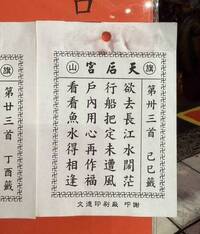 旗 天后宮 山
第卅三首 己巳籤
欲去長江水闊茫
行船把定未遭風
戶內用心再作福
看看魚水得相逢
印刷廠 叩謝
旗
第廿三首 丁酉籤